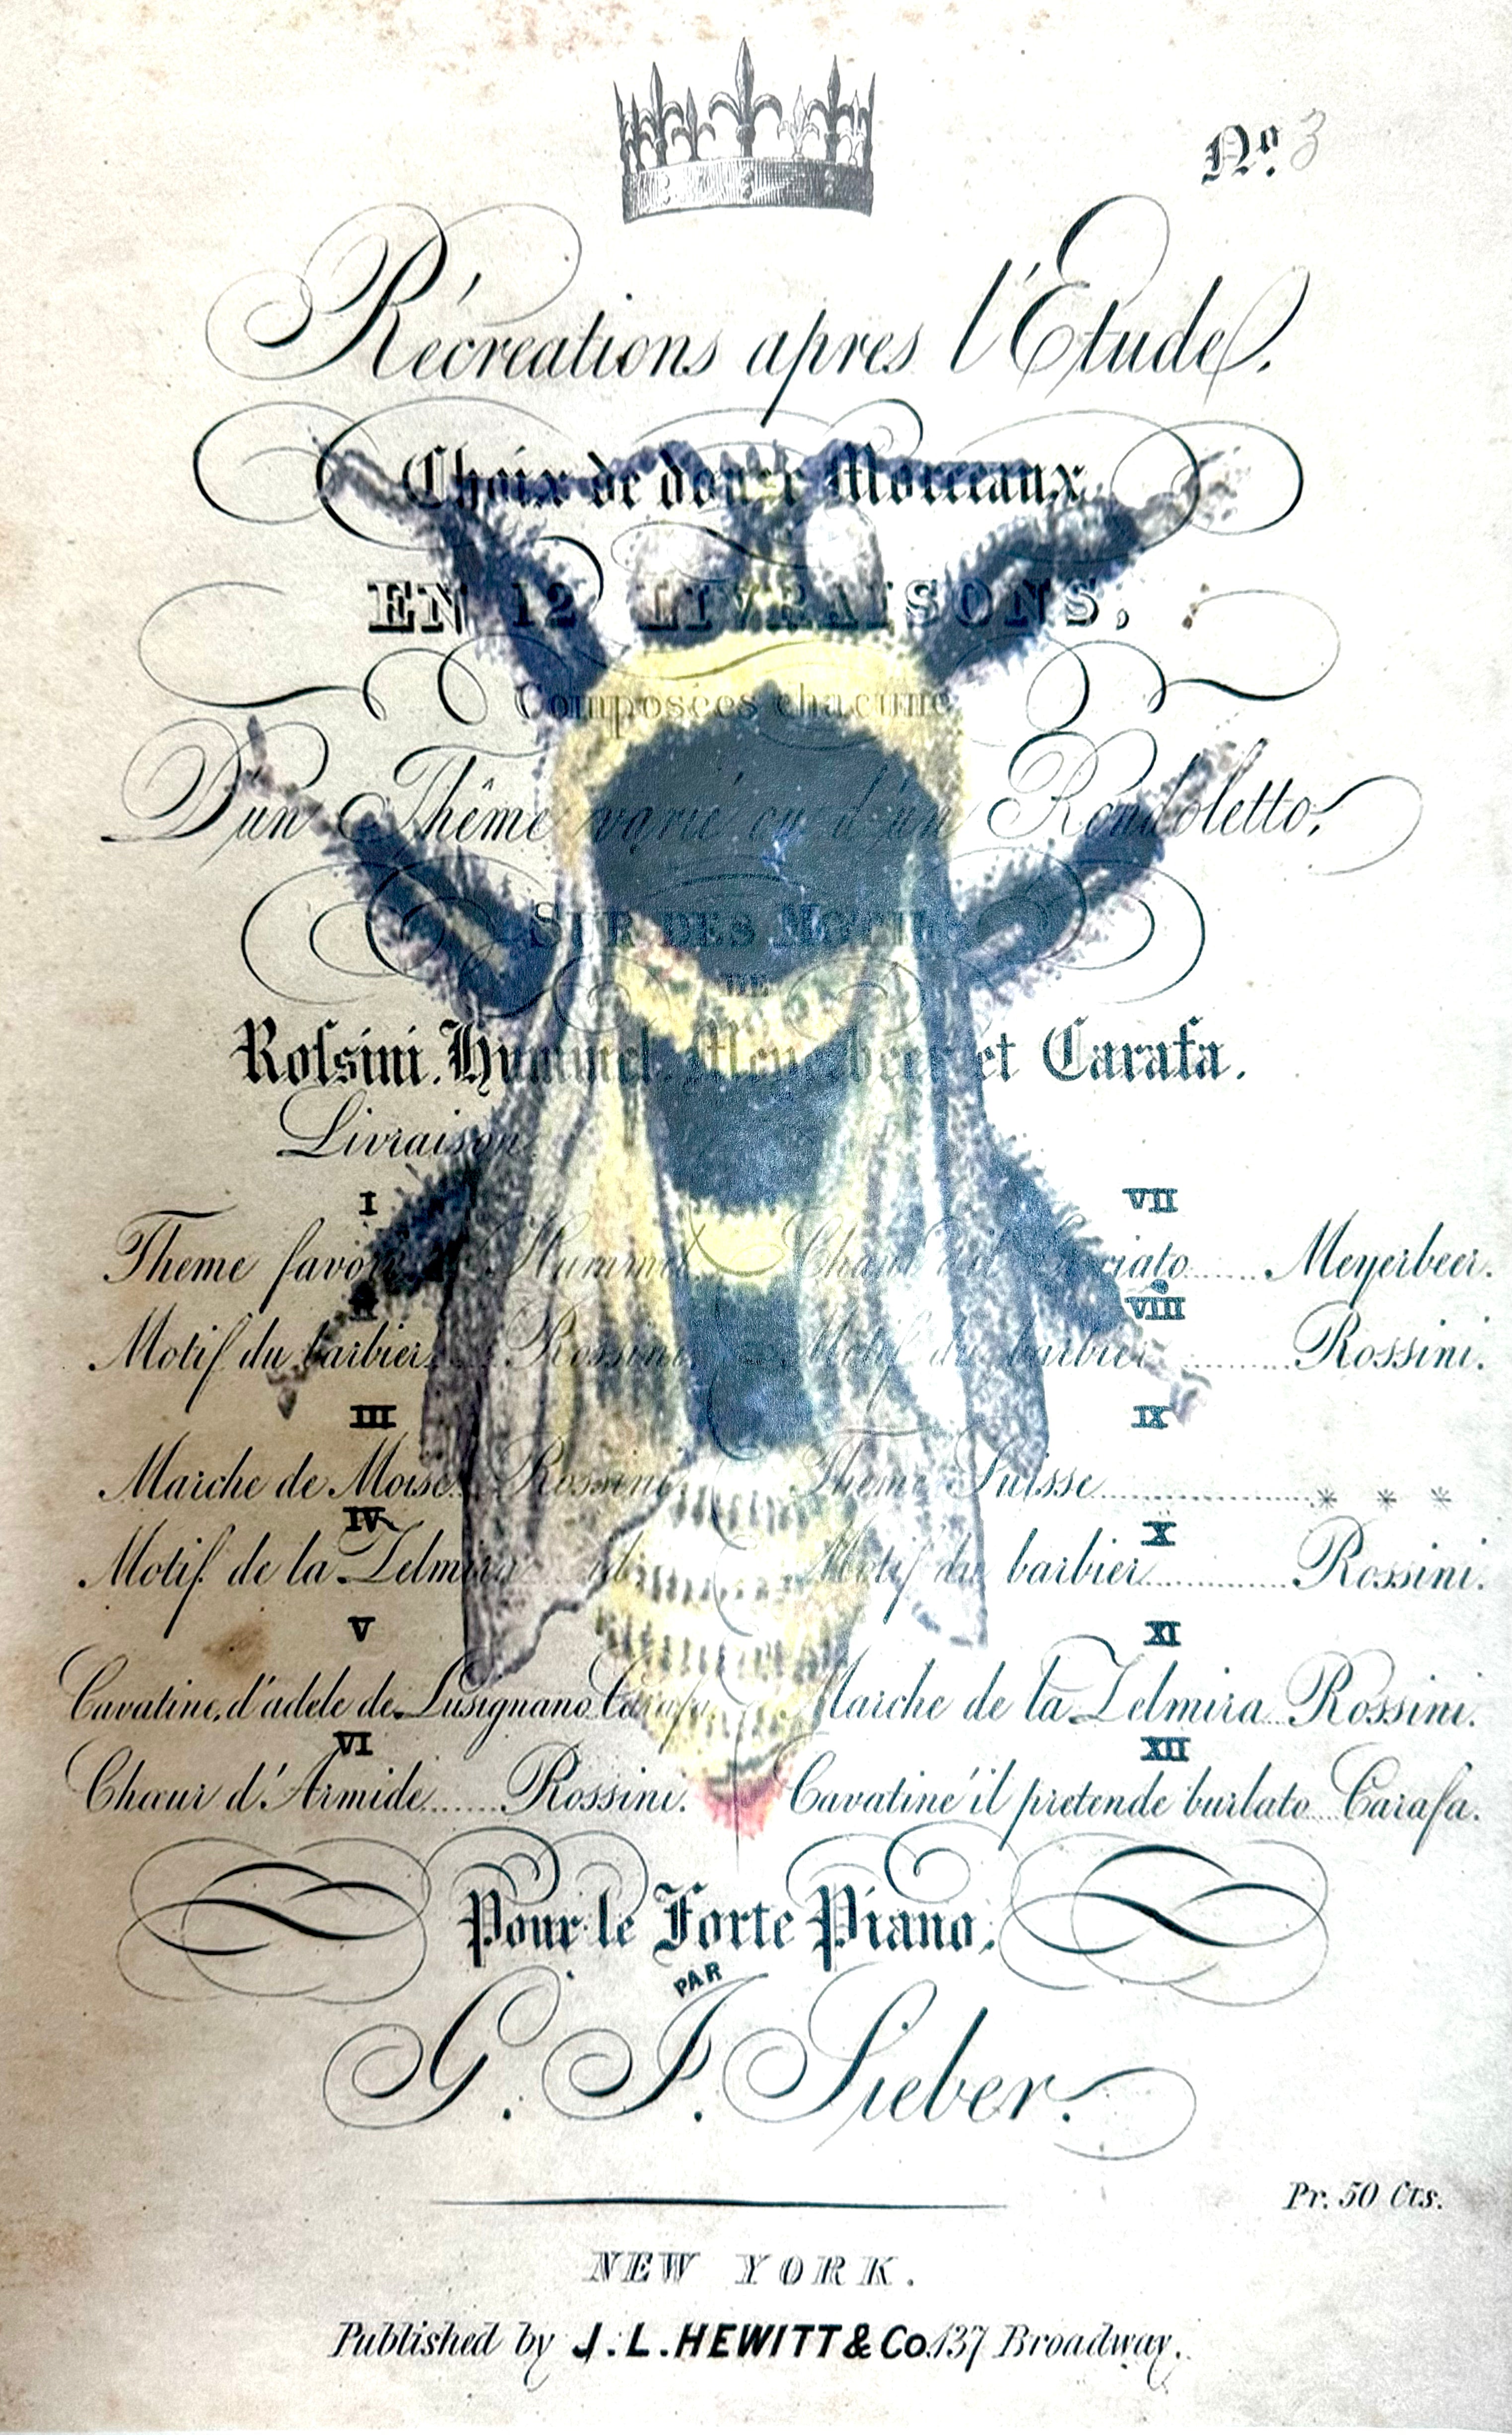 No. 3
Récreations apres l'Etude.
Choix de douze Morceaux
EN 12 LIVRAISONS,
Composées chacune
D'un Thême varié ou d'un Rondoletto,
SUR DES MOTIFS
DE
Rossini. Hummel. Meyerbeer et Carafa.
Livraison
I
Theme favori Hummel.
II
Motif du barbier. Rossini.
III
Marche de Moise. Rossini.
IV
Motif de la Zelmira id.
V
Cavatine, d'adele de Lusignano Carafa.
VI
Chœur d'Armide....... Rossini.
VII
Chant du Crociato...... Meyerbeer.
VIII
Motif du barbier.......... Rossini.
IX
Theme Suisse.................... * * *
X
Motif du barbier............. Rossini.
XI
Marche de la Zelmira.. Rossini.
XII
Cavatine il pretende burlato.. Carafa.
Pour le Forte Piano.
PAR
G. J. Sieber.
Pr. 50 Cts.
NEW YORK.
Published by J. L. HEWITT & Co. 137 Broadway.